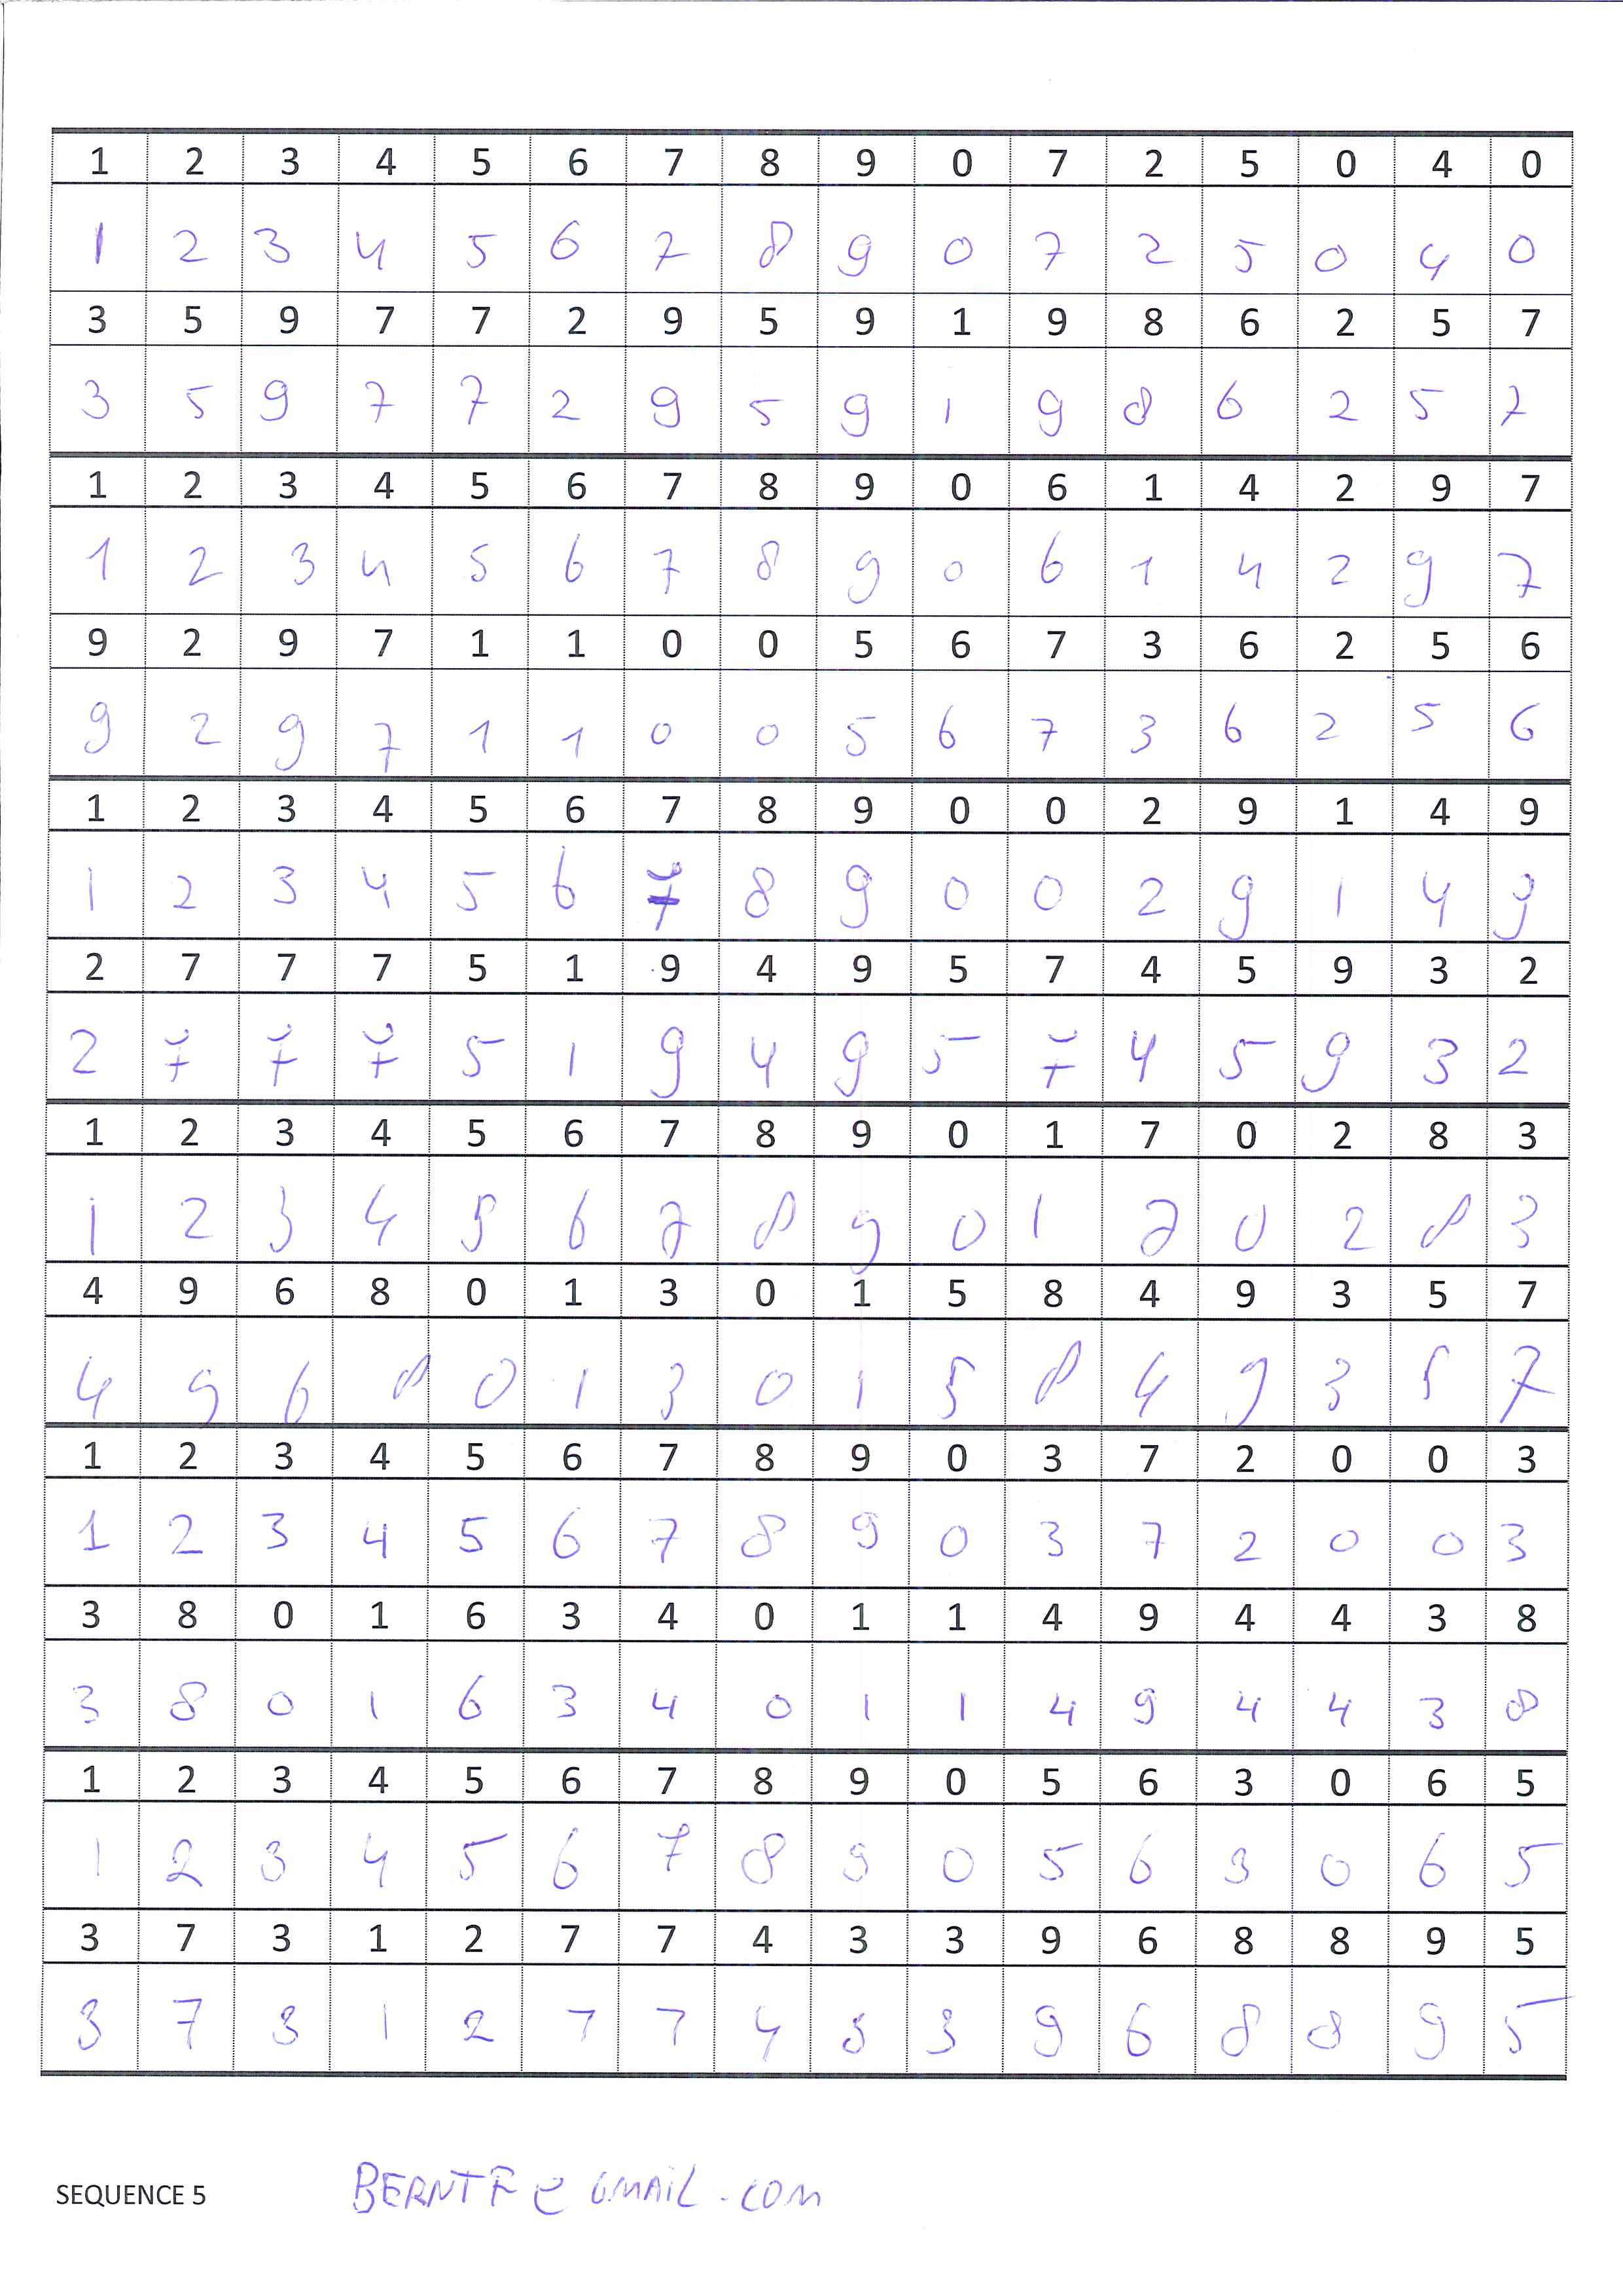 1 2 3 4 5 6 7 8 9 0 7 2 5 0 4 0
1 2 3 4 5 6 7 8 9 0 7 2 5 0 4 0
3 5 9 7 7 2 9 5 9 1 9 8 6 2 5 7
3 5 9 7 7 2 9 5 9 1 9 8 6 2 5 7
1 2 3 4 5 6 7 8 9 0 6 1 4 2 9 7
1 2 3 4 5 6 7 8 9 0 6 1 4 2 9 7
9 2 9 7 1 1 0 0 5 6 7 3 6 2 5 6
9 2 9 7 1 1 0 0 5 6 7 3 6 2 5 6
1 2 3 4 5 6 7 8 9 0 0 2 9 1 4 9
1 2 3 4 5 6 7 8 9 0 0 2 9 1 4 9
2 7 7 7 5 1 9 4 9 5 7 4 5 9 3 2
2 7 7 7 5 1 9 4 9 5 7 4 5 9 3 2
1 2 3 4 5 6 7 8 9 0 1 7 0 2 8 3
1 2 3 4 5 6 7 8 9 0 1 7 0 2 8 3
4 9 6 8 0 1 3 0 1 5 8 4 9 3 5 7
4 9 6 8 0 1 3 0 1 5 8 4 9 3 5 7
1 2 3 4 5 6 7 8 9 0 3 7 2 0 0 3
1 2 3 4 5 6 7 8 9 0 3 7 2 0 0 3
3 8 0 1 6 3 4 0 1 1 4 9 4 4 3 8
3 8 0 1 6 3 4 0 1 1 4 9 4 4 3 8
1 2 3 4 5 6 7 8 9 0 5 6 3 0 6 5
1 2 3 4 5 6 7 8 9 0 5 6 3 0 6 5
3 7 3 1 2 7 7 4 3 3 9 6 8 8 9 5
3 7 3 1 2 7 7 4 3 3 9 6 8 8 9 5
SEQUENCE 5 BERNTF@GMAIL.COM